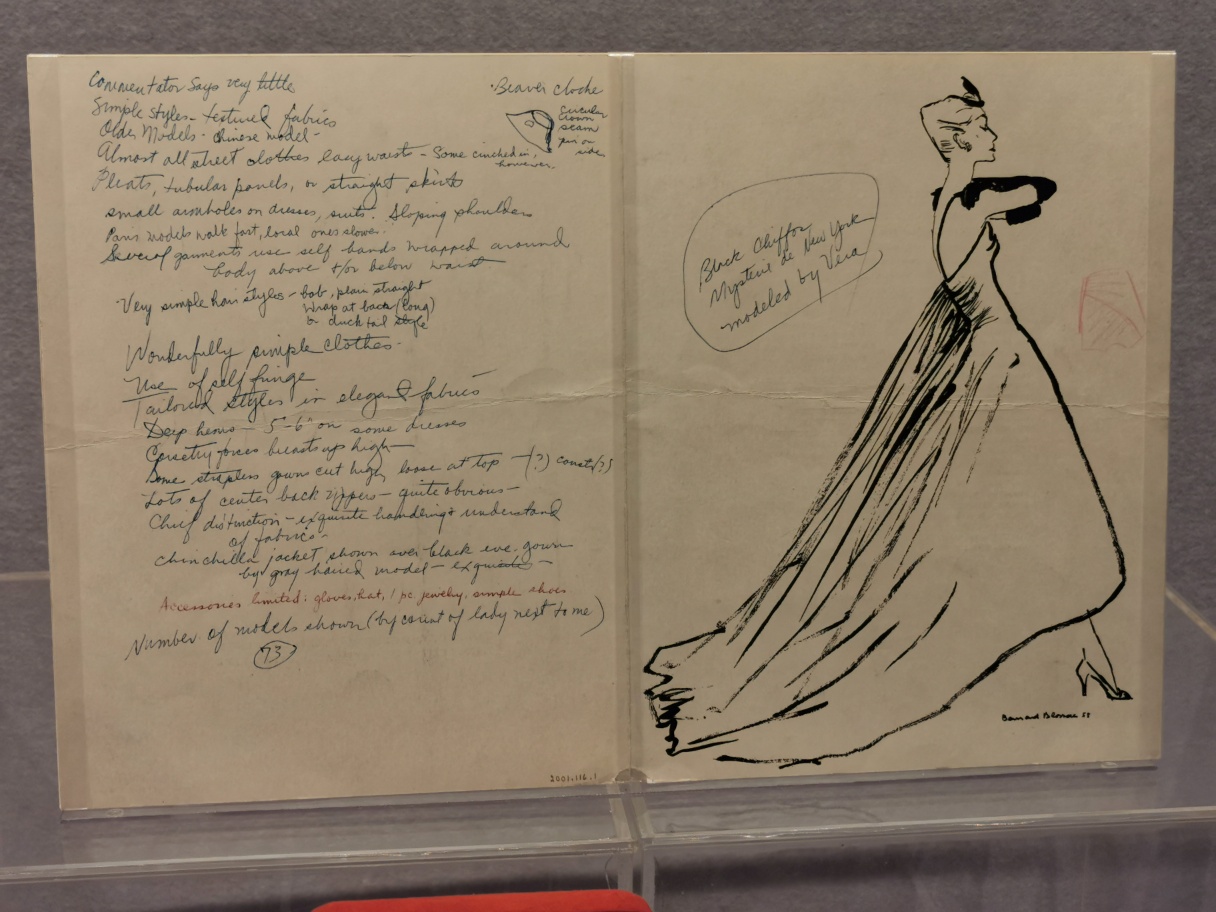 Commentator Says very little
Simple styles - textured fabrics
Older Models - Chinese model -
Almost all street clothes easy waist - Some cinched in,
however.
Pleats, tubular panels, or straight skirts
small armholes on dresses, suits. Sloping shoulders
Paris models walk fast, local ones slower.
Several garments use self bands wrapped around
body above +/or below waist
Very simple hair styles - bob, plain straight
wrap at back (long)
or duck tail style
Wonderfully simple clothes -
Use of self fringe
Tailored styles in elegant fabrics
Deep hems - 5-6" on some dresses
Corsetry forces breasts up high -
Some strapless gowns cut high, loose at top - (?)
Lots of center back zippers - quite obvious -
Chief distinction - exquisite handling + understand
of fabrics -
Chinchilla jacket shown over black eve. gown
by gray haired model - exquisite -
Accessories limited: gloves, hat, 1 pc. jewelry, simple shoes
Number of models shown (by count of lady next to me)
73
Beaver cloche
circular
crown
seam
pin on
side
2001.116.1
Black Chiffon
Mystere de New York
modeled by Vera
58